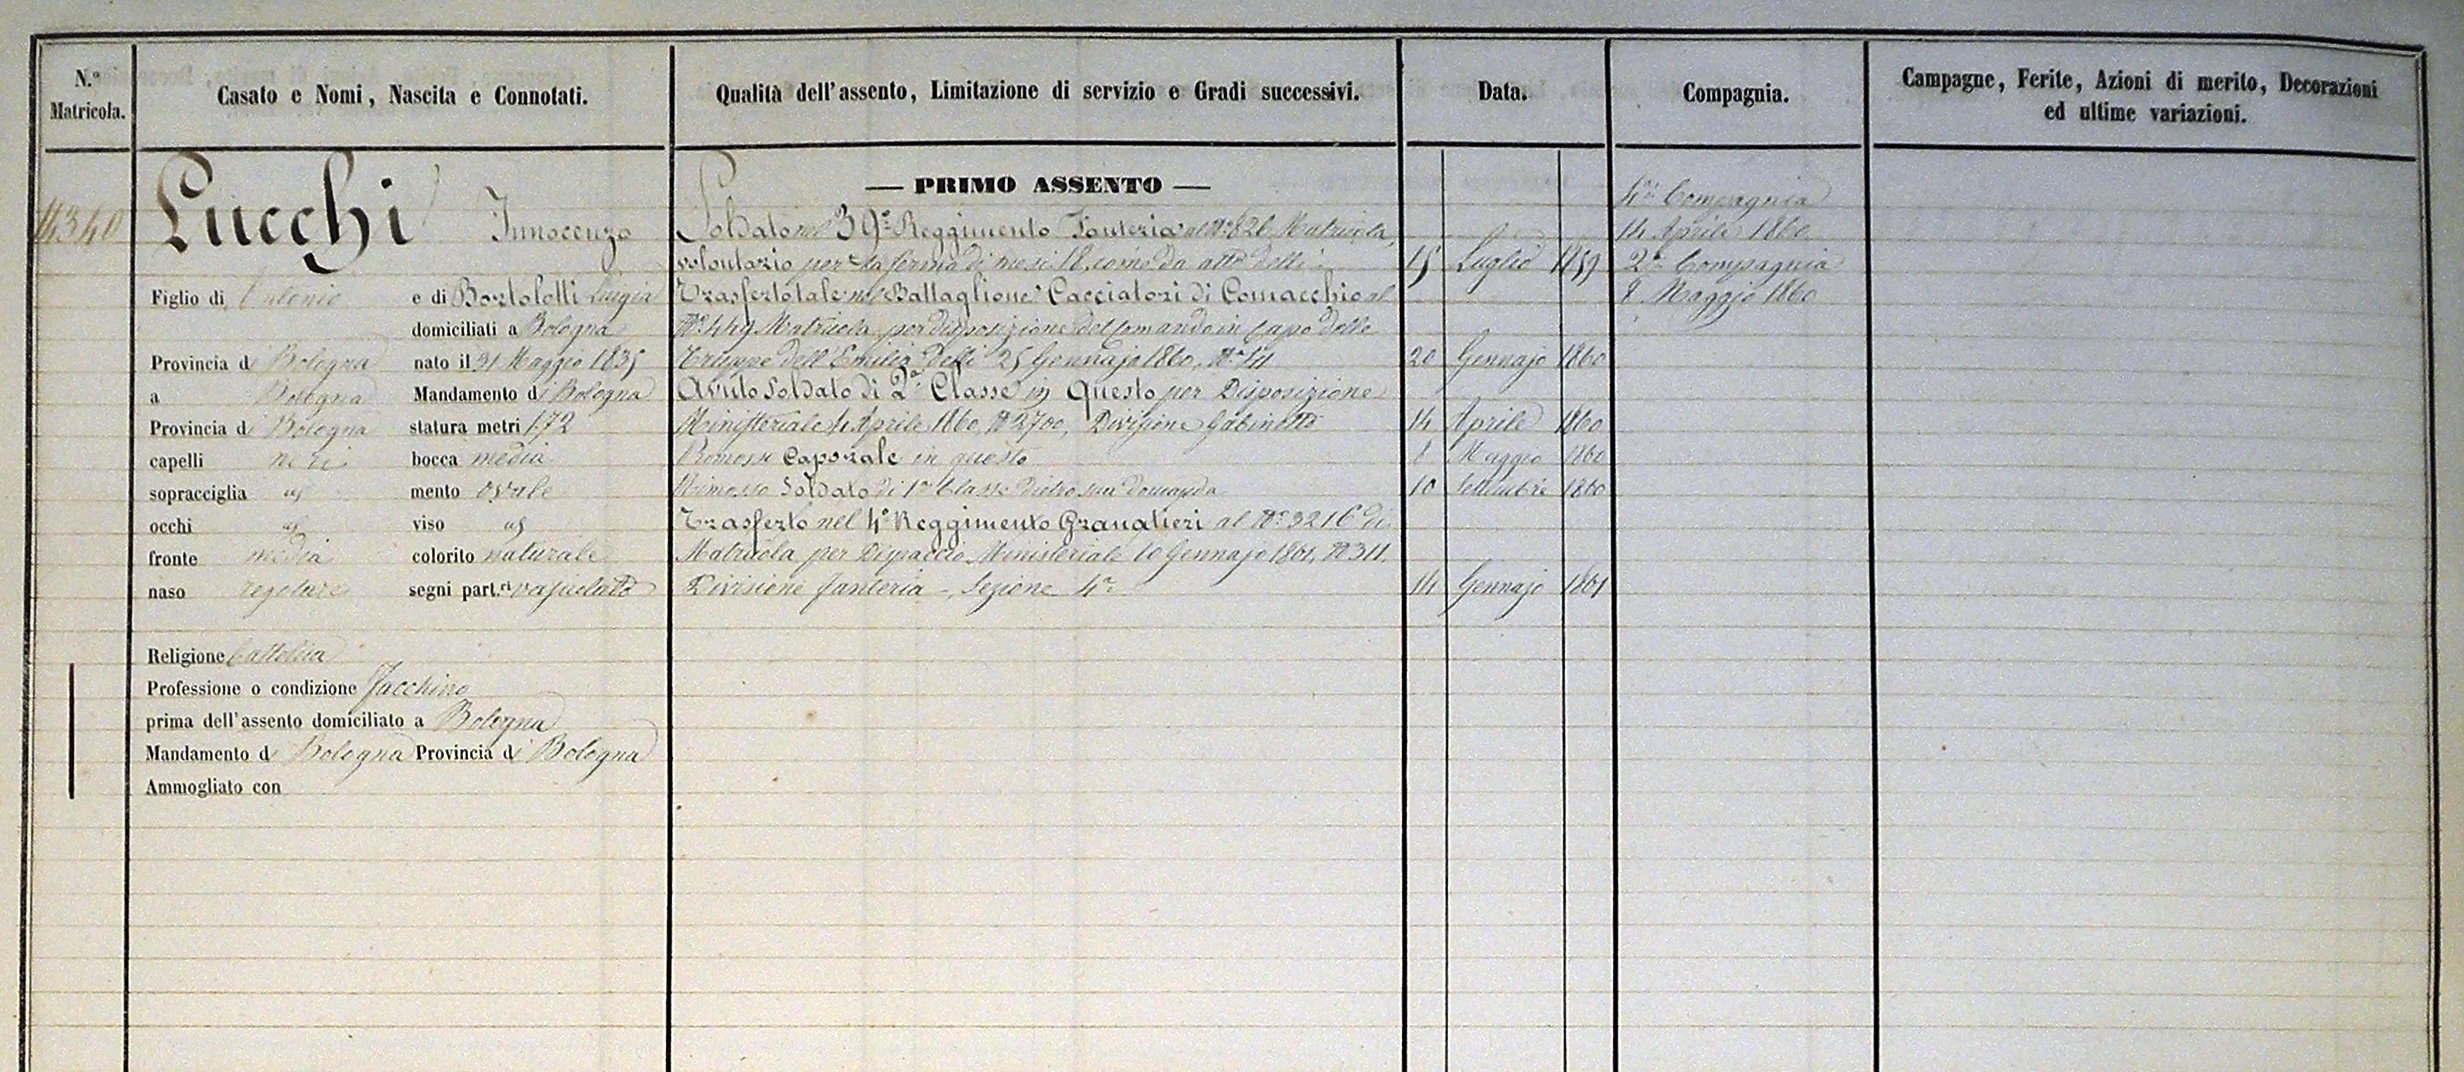 N.º Matricola.
Casato e Nomi, Nascita e Connotati.
Qualità dell'assento, Limitazione di servizio e Gradi successivi.
Data.
Compagnia.
Campagne, Ferite, Azioni di merito, Decorazioni
ed ultime variazioni.
4340
Lucchi Innocenzo
Figlio di Antonio e di Bortolotti Luigia
domiciliati a Bologna
Provincia di Bologna nato il 31 Maggio 1835
a Bologna Mandamento di Bologna
Provincia di Bologna statura metri 1.72
capelli neri bocca media
sopracciglia as mento ovale
occhi as viso as
fronte media colorito naturale
naso regolare segni part.ri vajuolato
Religione Cattolica
Professione o condizione Facchino
prima dell'assento domiciliato a Bologna
Mandamento di Bologna Provincia di Bologna
Ammogliato con
— PRIMO ASSENTO —
Soldato nel 39º Reggimento Fanteria al Nº 826 Matricola,
volontario per la ferma di mesi 18, come da atto delli 15 Luglio 1859
Trasferto tale nel Battaglione Cacciatori di Comacchio al
Nº 449 Matricola per disposizione del Comando in Capo delle
Truppe dell'Emilia delli 25 Gennajo 1860, Nº 20 Gennajo 1860
Avuto Soldato di 2ª Classe in Questo per Disposizione
Ministeriale 4 Aprile 1860 Nº 2700, Divisione Gabinetto 14 Aprile 1860
Promosso Caporale in questo 8 Maggio 1860
Rimosso Soldato di 1ª Classe dietro sua domanda 10 Settembre 1860
Trasferto nel 4º Reggimento Granatieri al Nº 3216 di
Matricola per Dispaccio Ministeriale 10 Gennajo 1861, Nº 311,
Divisione fanteria - Sezione 4ª 14 Gennajo 1861
4ª Compagnia
14 Aprile 1860
2ª Compagnia
8 Maggio 1860